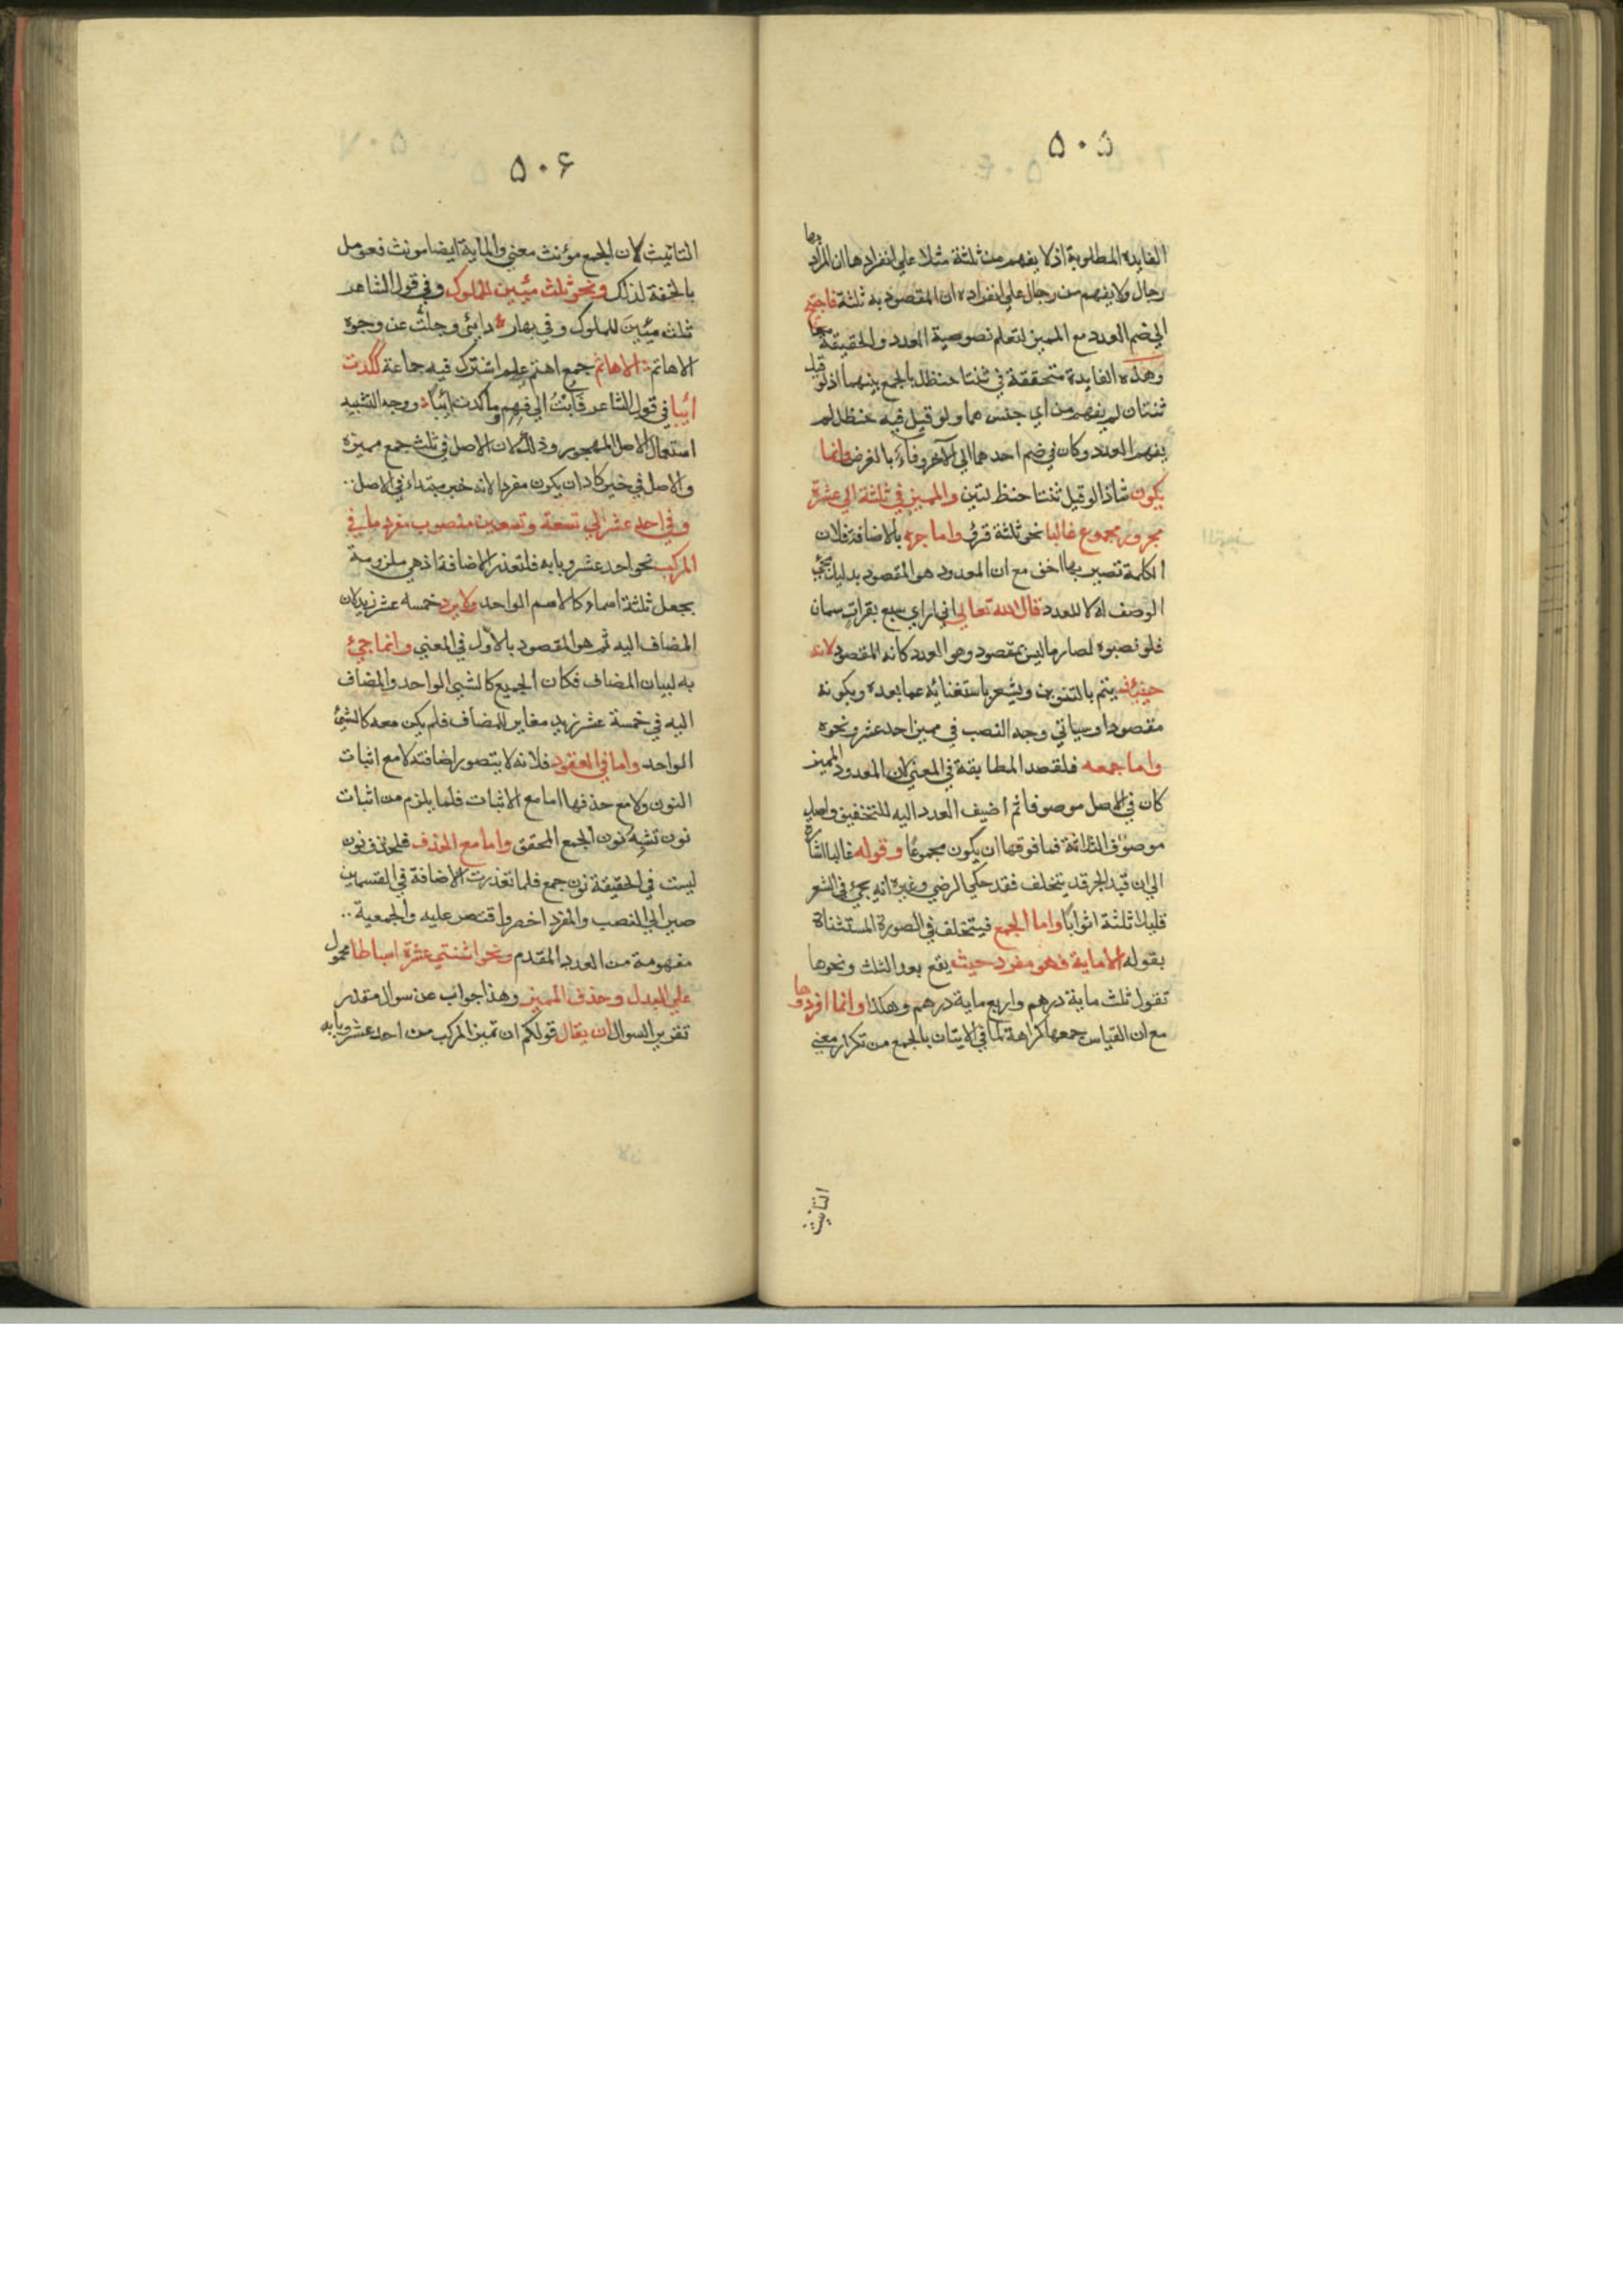 ٥٠٥
الفايده المطلوبة اذ لا يفهم من ثلثة مثلا على انفرادها ان المراد بها
رجال ولا يفهم من رجال على انفراده ان المقصود به ثلثة فاحتيج
الى ضم العدد مع المميز لتعلم نصوصية العدد والحقيقة معا
وهذه الفايدة متحققة في ثنتا حنظل بالجمع بينهما اذ لو قيل
ثنتان لم يفهم من اي جنس هما ولو قيل فيه حنظل لم
يفهم العدد وكان في ضم احدهما الى الآخر وفاء بالغرض وانما
يكون شاذا لو قيل ثنتا حنظلتين والمميز في ثلثة الى عشرة
مجرور مجموع غالبا نحو ثلثة قروء واما جره بالاضافة فلان
الكلمة تصير بها اخف مع ان المعدود هو المقصود بدليل مجئ
الوصف له لا للعدد قال الله تعالى اني ارى سبع بقرات سمان
فلو نصبوه لصار ما ليس بمقصود وهو العدد كانه المقصود لانه
حينئذ يتم بالتنوين ويشعر باستغنائه عما بعده وبكونه
مقصودا وسياتي وجه النصب في مميز احد عشر ونحوه
واما جمعه فلقصد المطابقة في المعنى لان المعدود المميز
كان في الاصل موصوفا ثم اضيف العدد اليه للتخفيف واصل
موصوف الثلاثة فما فوقها ان يكون مجموعا وقوله غالبا اشارة
الى ان قيد الجر قد يتخلف فقد حكى الرضي وغيره انه يجئ في الشعر
قليلا ثلثة اثوابا واما الجمع فيتخلف في الصورة المستثناة
بقوله الا ماية فهو مفرد حيث يقع بعد الثلث ونحوها
تقول ثلث ماية درهم واربع ماية درهم وهكذا وانما افردوها
مع ان القياس جمعها كراهة لما في الاتيان بالجمع من تكرار معنى
التانيث
٥٠۶
التانيث لان الجمع مؤنث معنى والماية ايضا مونث فعومل
بالخفة لذلك ونحو ثلث مئين للملوك وفي قول الشاعر
ثلث مئين للملوك وفي بها ردائي وجلت عن وجوه
الاهاتم الاهاتم جمع اهتم علم اشترك فيه جماعة ككدت
ائبا في قول الشاعر فابت الى فهم وما كدت ائبا ووجه التشبيه
استعمال الاصل المهجور وذلك لان الاصل في ثلث جمع مميزه
والاصل في خبر كاد ان يكون مفردا لانه خبر مبتداء في الاصل
وفي احد عشر الى تسعة وتسعين منصوب مفرد ما في
المركب نحو احد عشر وبابه فلتعذر الاضافة اذ هي ملزومة
بجعل ثلثة اسماء كالاسم الواحد ولا يرد خمسه عشر زيد لان
المضاف اليه ثم هو المقصود بالاول في المعنى وانما جئ
به لبيان المضاف فكان الجميع كالشئ الواحد والمضاف
اليه في خمسة عشر زيد مغاير للمضاف فلم يكن معه كالشئ
الواحد واما في العقود فلانه لا يتصور اضافته لا مع اثبات
النون ولا مع حذفها اما مع الاثبات فلما يلزم من اثبات
نون تشبه نون الجمع المحقق واما مع الحذف فلحذف نون
ليست في الحقيقة نون جمع فلما تعذرت الاضافة في القسمين
صير الى النصب والمفرد اخصر واقتصر عليه والجمعية
مفهومة من العدد المقدم ونحو اثنتى عشرة اسباطا محمول
على البدل وحذف المميز وهذا جواب عن سوال مقدر
تقرير السوال ان يقال قولكم ان تميز المركب من احد عشر وبابه